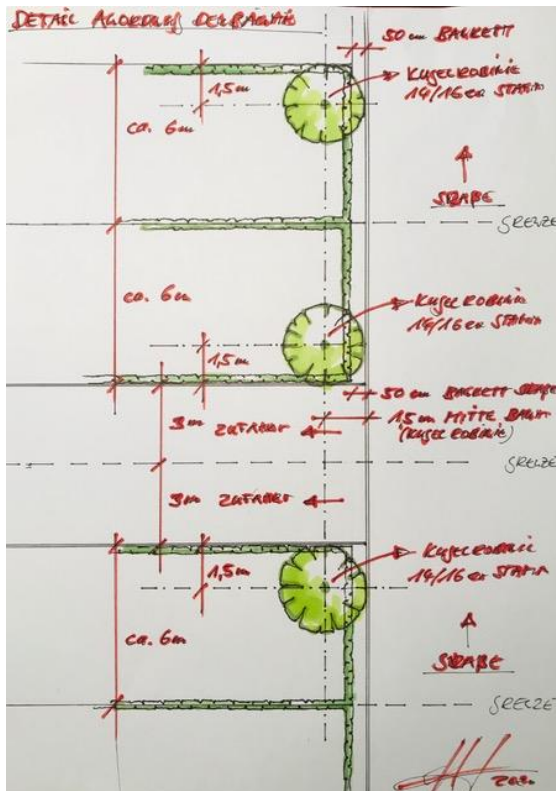 DETAIL ANORDNUNG DER BÄUME
50 cm BANKETT
KUGELROBINIE
14/16 er STAMM
1,5 m
ca. 6m
STRAßE
GRENZE
ca. 6m
KUGELROBINIE
14/16 er STAMM
1,5 m
50 cm BANKETT STRAßE
1,5 m MITTE BAUM
(KUGELROBINIE)
3m ZUFAHRT
GRENZE
3m ZUFAHRT
KUGELROBINIE
14/16 er STAMM
1,5 m
ca. 6m
STRAßE
GRENZE